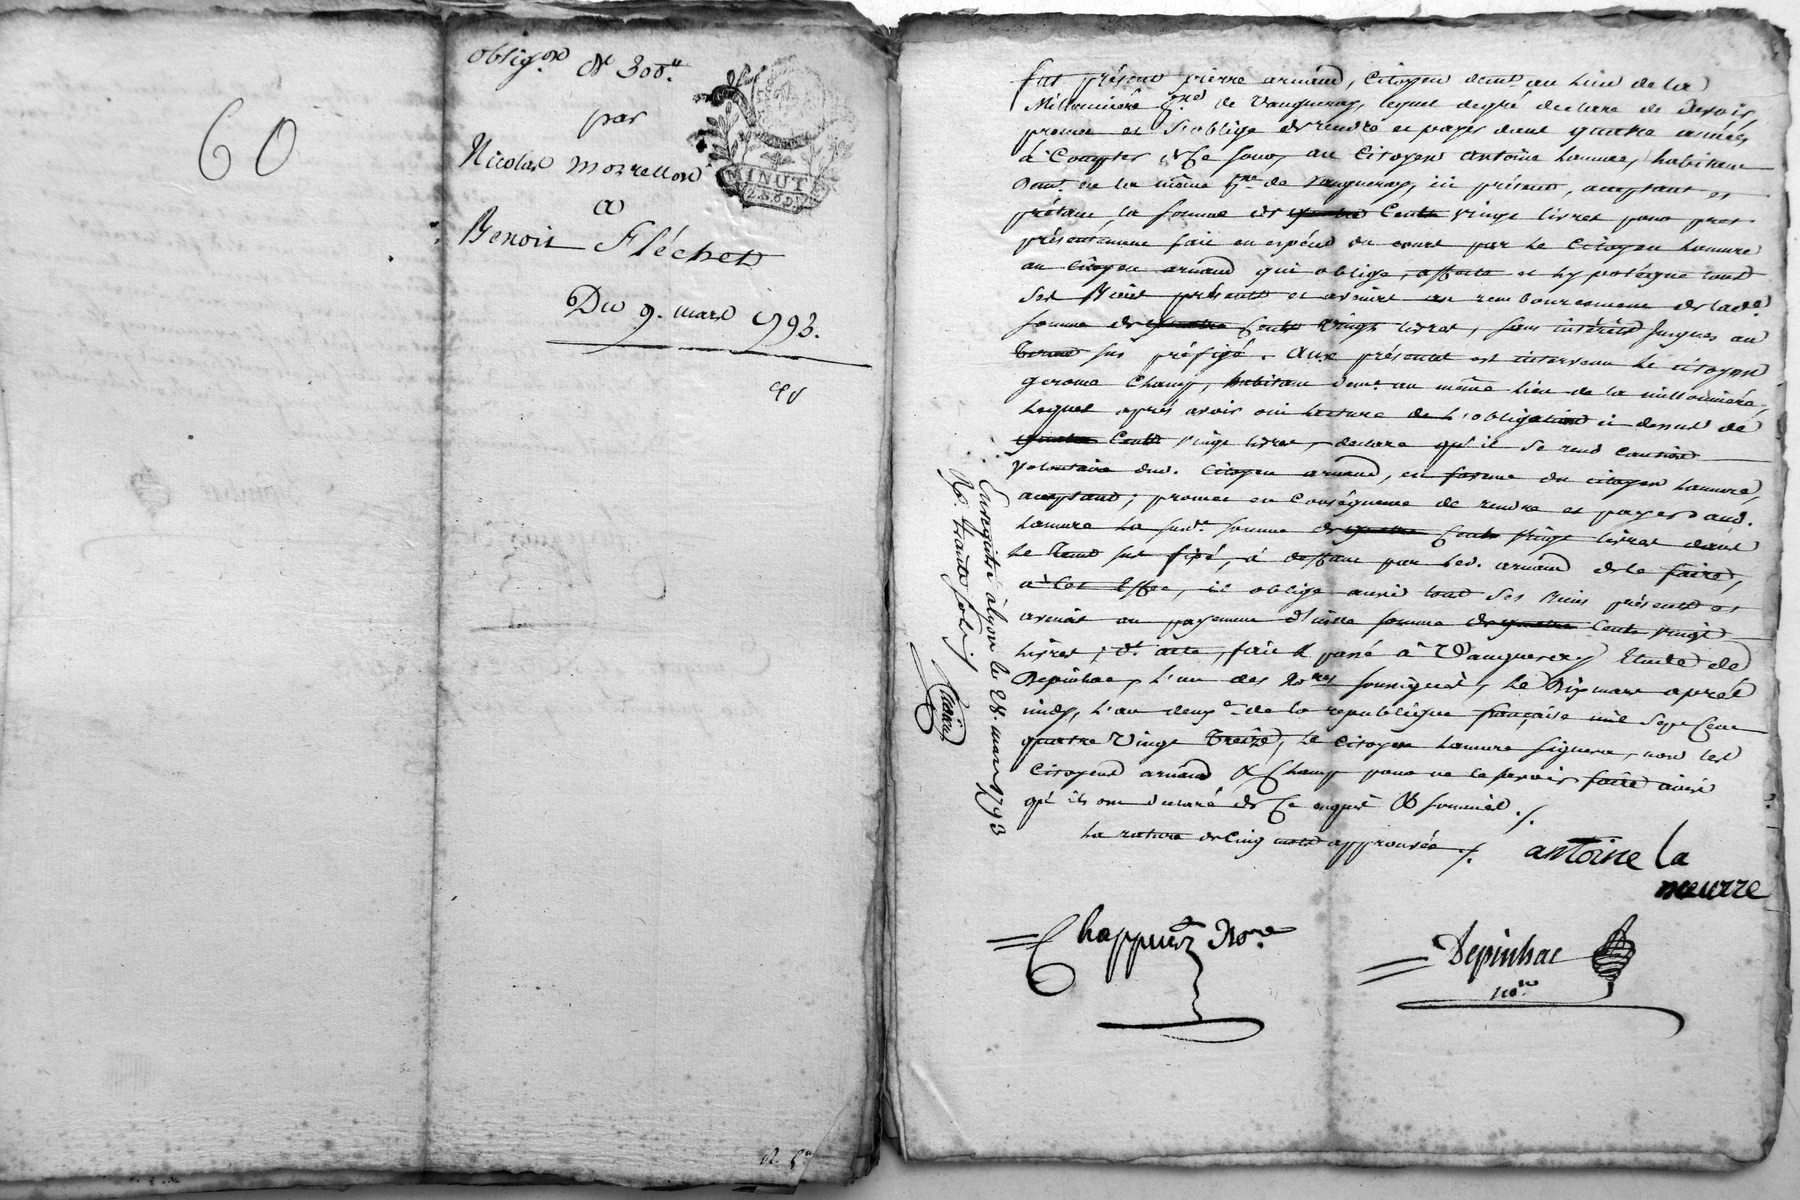 60
obligon de 300ll
par
Nicolas morrellon
a
Benoit Fléchet
Du 9. mars 1793.
MINUTE
fut présent pierre arnaud, Citoyen demt au Lieu de la
Milloniere de Vaugneray, lequel de gré declare de devoir,
promet et s'oblige de rendre et payer dans quatre années
à Compter de Ce jour, au Citoyen antoine Lameure, habitant
demt au la même de vaugneray, ici présent, acceptant et
prêtant la somme de quatre Cents vingt livres pour prêt
présentement fait en espéces du cours par Le Citoyen Lameure
au Citoyen arnaud qui oblige, affecte et hypotéque tous
ses Biens présents et avenirs au remboursement de lade
somme de quatre Cents Vingt livres, sans intérêts jusques au
terme sus préfigé. aux présentes est intervenu Le citoyen
gerome Champ, habitant demt au même lieu de la milloniere,
Lequel après avoir oui lecture de L'obligation ci dessus de
quatre Cents vingt livres, declare qu'il se rend Caution
volontaire dud. Citoyen arnaud, en faveur du citoyen Lameure,
acceptant; promet en Conséquence de rendre et payer aud.
Lameure La susd. somme de quatre Cents vingt livres dans
Le tems sus fixé, à deffaut par led. arnaud de le faire,
à Cet Effet, il oblige aussi tous ses Biens présents et
avenir au payement d'icelle somme de quatre Cents vingt
livres; dt acte, fait & passé à Vaugneray Etude de
Depinhac, L'un des Nores soussignés, Le Dix mars après
midy, L'an deuxe de la republique française mil sept Cent
quatre Vingt treize, Le Citoyen Lameure signera, non les
Citoyens arnaud & Champ pour ne le savoir faire ainsi
qu'ils ont declaré de Ce enquis & sommés ./.
La rature de Cinq mots approuvée ./.
antoine la
meurre
Chappuis Nore
Depinhac
nore
Enregistré à lyon le 28. mars 1793
R. trente sols